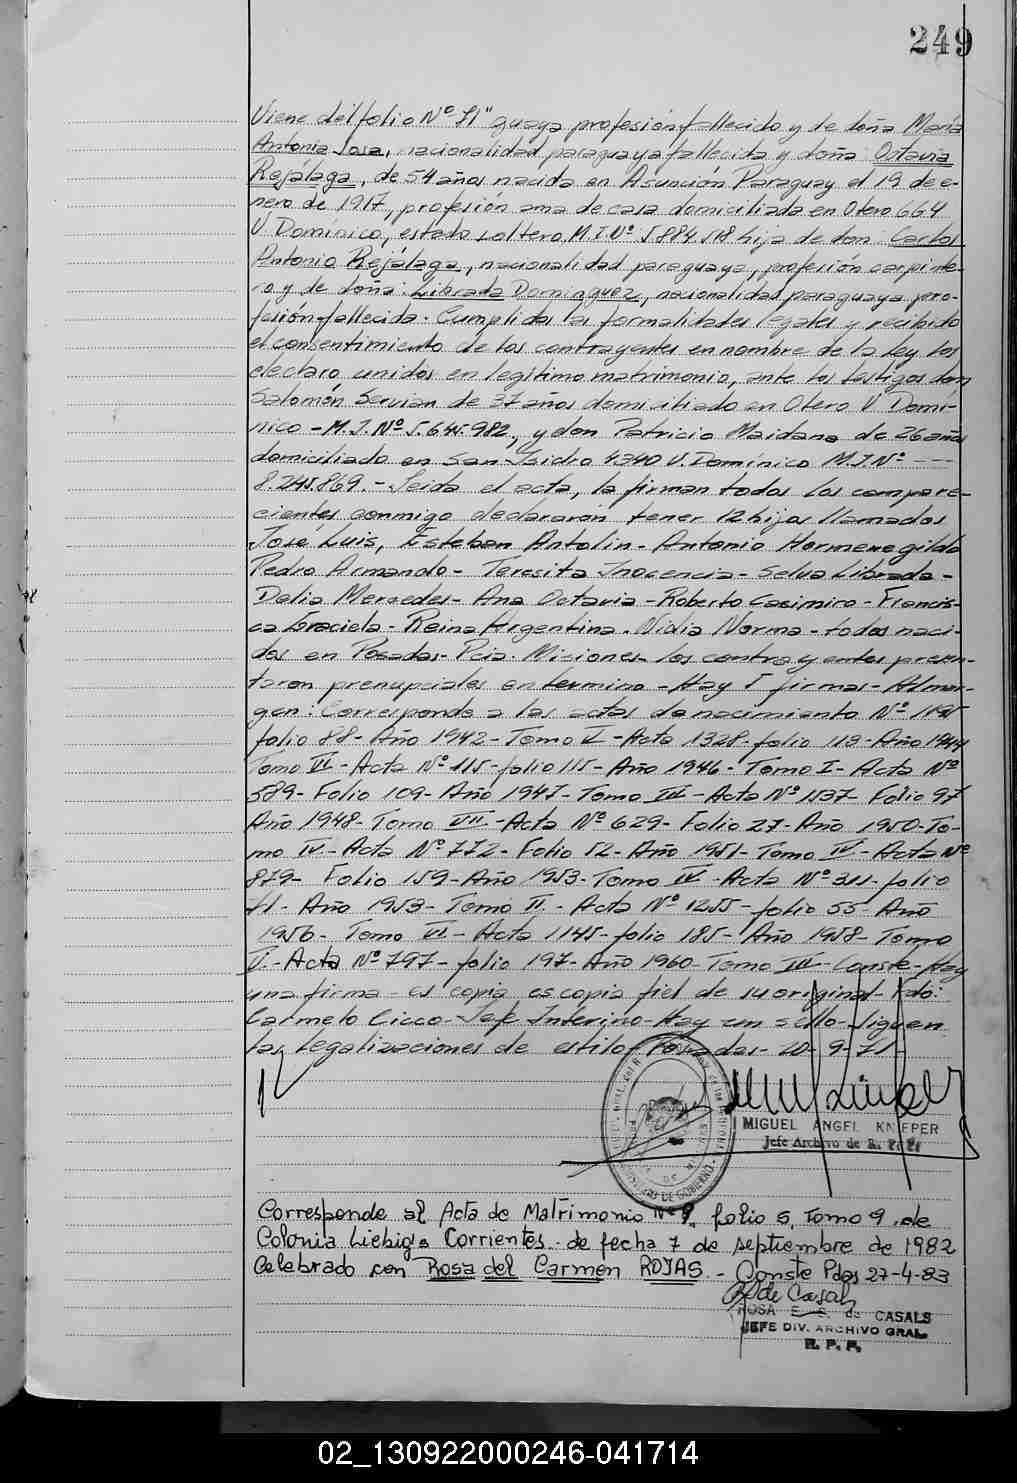 249
Viene del folio Nº 71" guaya profesión fallecido y de doña María
Antonia Sosa, nacionalidad paraguaya fallecida y doña Octavia
Rejálaga, de 54 años nacida en Asunción Paraguay el 19 de e-
nero de 1917, profesión ama de casa domiciliada en Otero 664
V Domínico, estado soltera M.I.Nº 5884518 hija de don: Carlos
Antonio Rejálaga, nacionalidad paraguaya, profesión carpinte-
ro y de doña: Librada Dominguez, nacionalidad paraguaya pro-
fesión fallecida. Cumplidas las formalidades legales y recibido
el consentimiento de los contrayentes en nombre de la ley los
declaro unidos en legítimo matrimonio, ante los testigos don
Salomón Servian de 37 años domiciliado en Otero V Domí-
nico - M.I.Nº 5.645.982, y don Patricio Maidana de 26 años
domiciliado en San Isidro 4340 V. Domínico M.I.Nº ----
8.245.869.- Leida el acta, la firman todos los compare-
cientes conmigo declararon tener 12 hijos llamados
José Luis, Esteban Antolin - Antonio Hermenegildo
Pedro Armando - Teresita Inocencia - Selva Librada -
Delia Mercedes - Ana Octavia - Roberto Casimiro - Francis-
ca Graciela - Reina Argentina. Nidia Norma - todos naci-
dos en Posadas - Pcia. Misiones los contrayentes presen-
taron prenupciales en termino - Hay 5 firmas - Al mar-
gen: Corresponde a las actas de nacimiento Nº 1195
folio 88 - Año 1942 - Tomo V - Acta 1328 - folio 119 - Año 1944
Tomo VI - Acta Nº 115 - folio 115 - Año 1946 - Tomo I - Acta Nº
589 - Folio 109 - Año 1947 - Tomo III - Acta Nº 1537 Folio 97
Año 1948 - Tomo VII - Acta Nº 629 - Folio 27 - Año 1950 - To-
mo IV - Acta Nº 772 - Folio 52 - Año 1951 - Tomo IV - Acta Nº
879 - Folio 159 - Año 1953 - Tomo IV - Acta Nº 311 - folio
71 - Año 1953 - Tomo II - Acta Nº 1255 - folio 55 - Año
1956 - Tomo VI - Acta 1145 - folio 185 - Año 1958 - Tomo
V - Acta Nº 797 - folio 197 - Año 1960 - Tomo III - Conste - Hay
una firma - es copia, es copia fiel de su original - Fdo:
Carmelo Cicco - Jefe Interino - Hay un sello - Siguen
las legalizaciones de estilo Posadas - 20 - 9 - 71 -
MIGUEL ANGEL KNIEPER
Jefe Archivo de R. P. P.
Corresponde al Acta de Matrimonio Nº 9, folio 5, Tomo 9, de
Colonia Liebig's Corrientes - de fecha 7 de septiembre de 1982
Celebrado con Rosa del Carmen ROJAS. - Conste Pdas 27-4-83
ROSA E. S. de CASALS
JEFE DIV. ARCHIVO GRAL.
R. P. P.
02_130922000246-041714